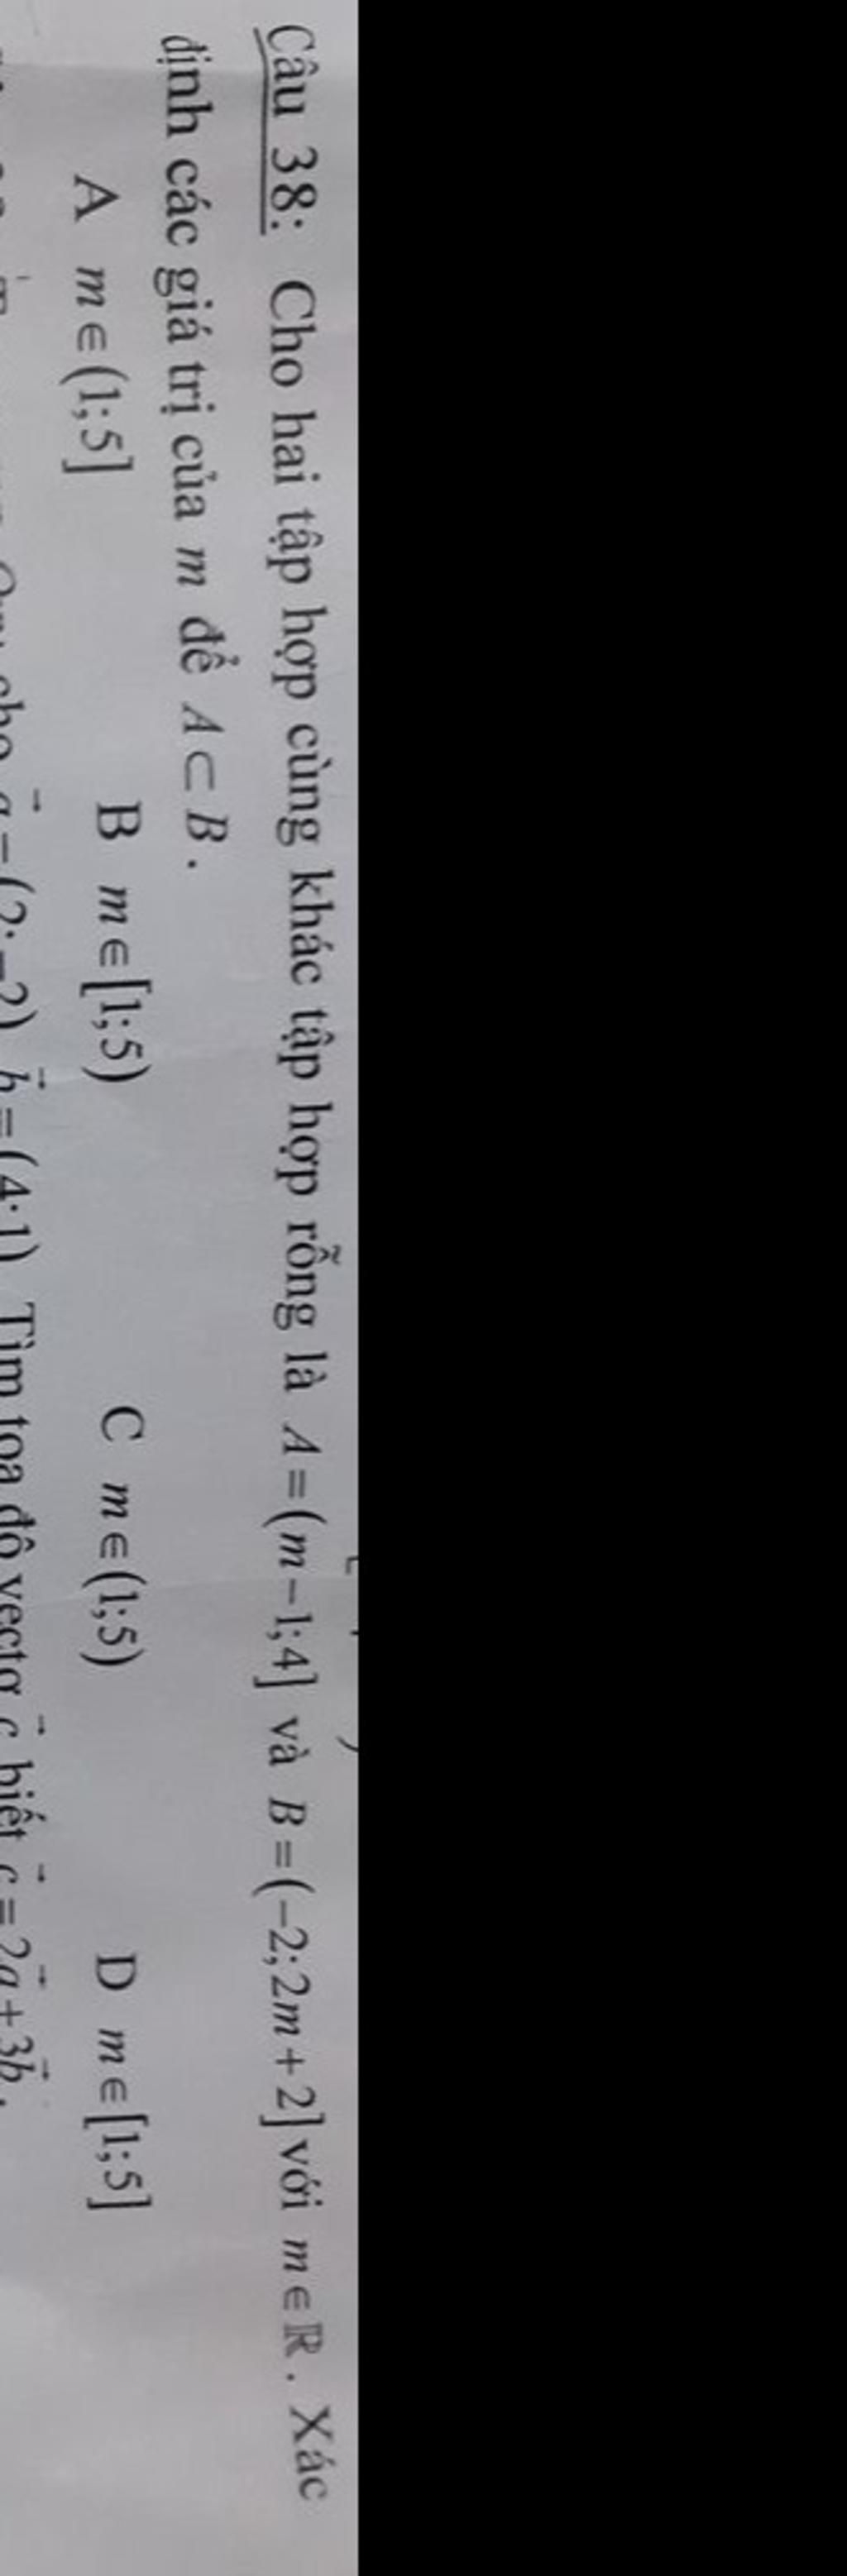 Câu 38: Cho hai tập hợp cùng khác tập hợp rỗng là A=(m−1;4] và B=(−2;2m+2] với m∈ℝ. Xác
định các giá trị của m để A⊂B.
A m∈(1;5] B m∈[1;5) C m∈(1;5) D m∈[1;5]
cho a⃗=(2;−2) b⃗=(4;1) Tìm tọa độ vectơ c⃗ biết c⃗=2a⃗+3b⃗.